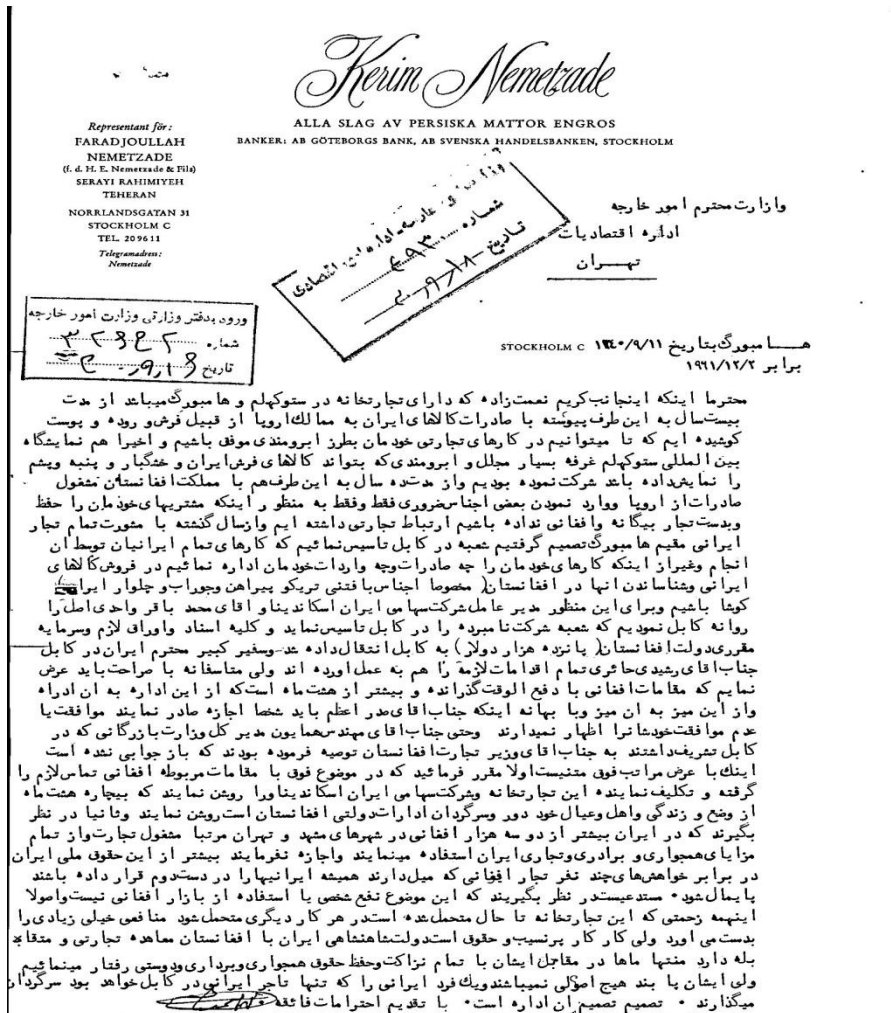 Kerim Nemetzade
ALLA SLAG AV PERSISKA MATTOR ENGROS
BANKER: AB GÖTEBORGS BANK, AB SVENSKA HANDELSBANKEN, STOCKHOLM
Representant för:
FARADJOULLAH
NEMETZADE
(f. d. H. E. Nemetzade & Fils)
SERAYI RAHIMIYEH
TEHERAN
NORRLANDSGATAN 31
STOCKHOLM C
TEL. 209611
Telegramadress:
Nemetzade
اداره اقتصادی
شماره
تاریخ
وزارت محترم امور خارجه
اداره اقتصادیات
تهران
ورود بدفتر وزارتی وزارت امور خارجه
شماره
تاریخ
STOCKHOLM C هامبورگ بتاریخ ۱۳۴۰/۹/۱۱
برابر ۱۹۶۱/۱۲/۲
محترما اینکه اینجانب کریم نعمت زاده که دارای تجارتخانه در ستوکهلم و هامبورگ میباشد از مدت
بیست سال به این طرف پیوسته با صادرات کالاهای ایران به ممالک اروپا از قبیل فرش و روده و پوست
کوشیده ایم که تا میتوانیم در کارهای تجارتی خودمان بطرز ابرومندی موفق باشیم و اخیرا هم نمایشگاه
بین المللی ستوکهلم غرفه بسیار مجلل و ابرومندی که بتواند کالاهای فرش ایران و خشگبار و پنبه و پشم
را نمایش داده باشد شرکت نموده بودیم و از مدت ده سال به این طرف هم با مملکت افغانستان مشغول
صادرات از اروپا و وارد نمودن بعضی اجناس ضروری فقط و فقط به منظور اینکه مشتریهای خودمان را حفظ
و بدست تجار بیگانه و افغانی نداده باشیم ارتباط تجارتی داشته ایم و از سال گذشته با مشورت تمام تجار
ایرانی مقیم هامبورگ تصمیم گرفتیم شعبه در کابل تاسیس نمائیم که کارهای تمام ایرانیان توسط ان
انجام و غیر از اینکه کارهای خودمان را چه صادرات و چه واردات خودمان اداره نمائیم در فروش کالاهای
ایرانی و شناساندن انها در افغانستان( مخصوصا اجناس بافتنی تریکو پیراهن و جوراب و چلوار ایران)
کوشا باشیم و برای این منظور مدیر عامل شرکت سهامی ایران اسکاندیناو اقای محمد باقر واحدی اصل را
روانه کابل نمودیم که شعبه شرکت نامبرده را در کابل تاسیس نماید و کلیه اسناد و اوراق لازم و سرمایه
مقرری دولت افغانستان( پانزده هزار دولار) به کابل انتقال داده شد و سفیر کبیر محترم ایران در کابل
جناب اقای رشیدی حائری تمام اقدامات لازمه را هم به عمل اورده اند ولی متاسفانه با صراحت باید عرض
نمایم که مقامات افغانی با دفع الوقت گذرانده و بیشتر از هشت ماه است که از این اداره به ان ادراه
و از این میز به ان میز و با بهانه اینکه جناب اقای صدر اعظم باید شخصا اجازه صادر نمایند موافقت یا
عدم موافقت خودشانرا اظهار نمیدارند و حتی جناب اقای مهندس همایون مدیر کل وزارت بازرگانی که در
کابل تشریف داشتند به جناب اقای وزیر تجارت افغانستان توصیه فرموده بودند که باز جوابی نشده است
اینک با عرض مراتب فوق متنیست اولا مقرر فرمائید که در موضوع فوق با مقامات مربوطه افغانی تماس لازم را
گرفته و تکلیف نماینده این تجارتخانه و شرکت سهامی ایران اسکاندیناورا روشن نمایند که بیچاره هشت ماه
از وضع و زندگی و اهل و عیال خود دور و سرگردان ادارات دولتی افغانستان است روشن نمایند و ثانیا در نظر
بگیرند که در ایران بیشتر از دو سه هزار افغانی در شهرهای مشهد و تهران مرتبا مشغول تجارت و از تمام
مزایای همجواری و برادری و تجاری ایران استفاده مینمایند و اجازه نفرمایند بیشتر از این حقوق ملی ایران
در برابر خواهش های چند نفر تجار افغانی که میل دارند همیشه ایرانیها را در دست دوم قرار داده باشند
پایمال شود۰ مستدعیست در نظر بگیریند که این موضوع نفع شخصی یا استفاده از بازار افغانی نیست و اصولا
اینهمه زحمتی که این تجارتخانه تا حال متحمل شده است در هر کار دیگری متحمل شود منافعی خیلی زیادی را
بدست می اورد ولی کار کار پرنسیب و حقوق است دولت شاهنشاهی ایران با افغانستان معاهده تجارتی و متقا
بله دارد منتها ماها در مقابل ایشان با تمام نزاکت و حفظ حقوق همجواری و برداری و دوستی رفتار مینمائیم
ولی ایشان پا بند هیچ اصولی نمیباشند و یک فرد ایرانی را که تنها تاجر ایرانی در کابل خواهد بود سرگردان
میگذارند ۰ تصمیم تصمیم ان اداره است۰ با تقدیم احترامات فائقه